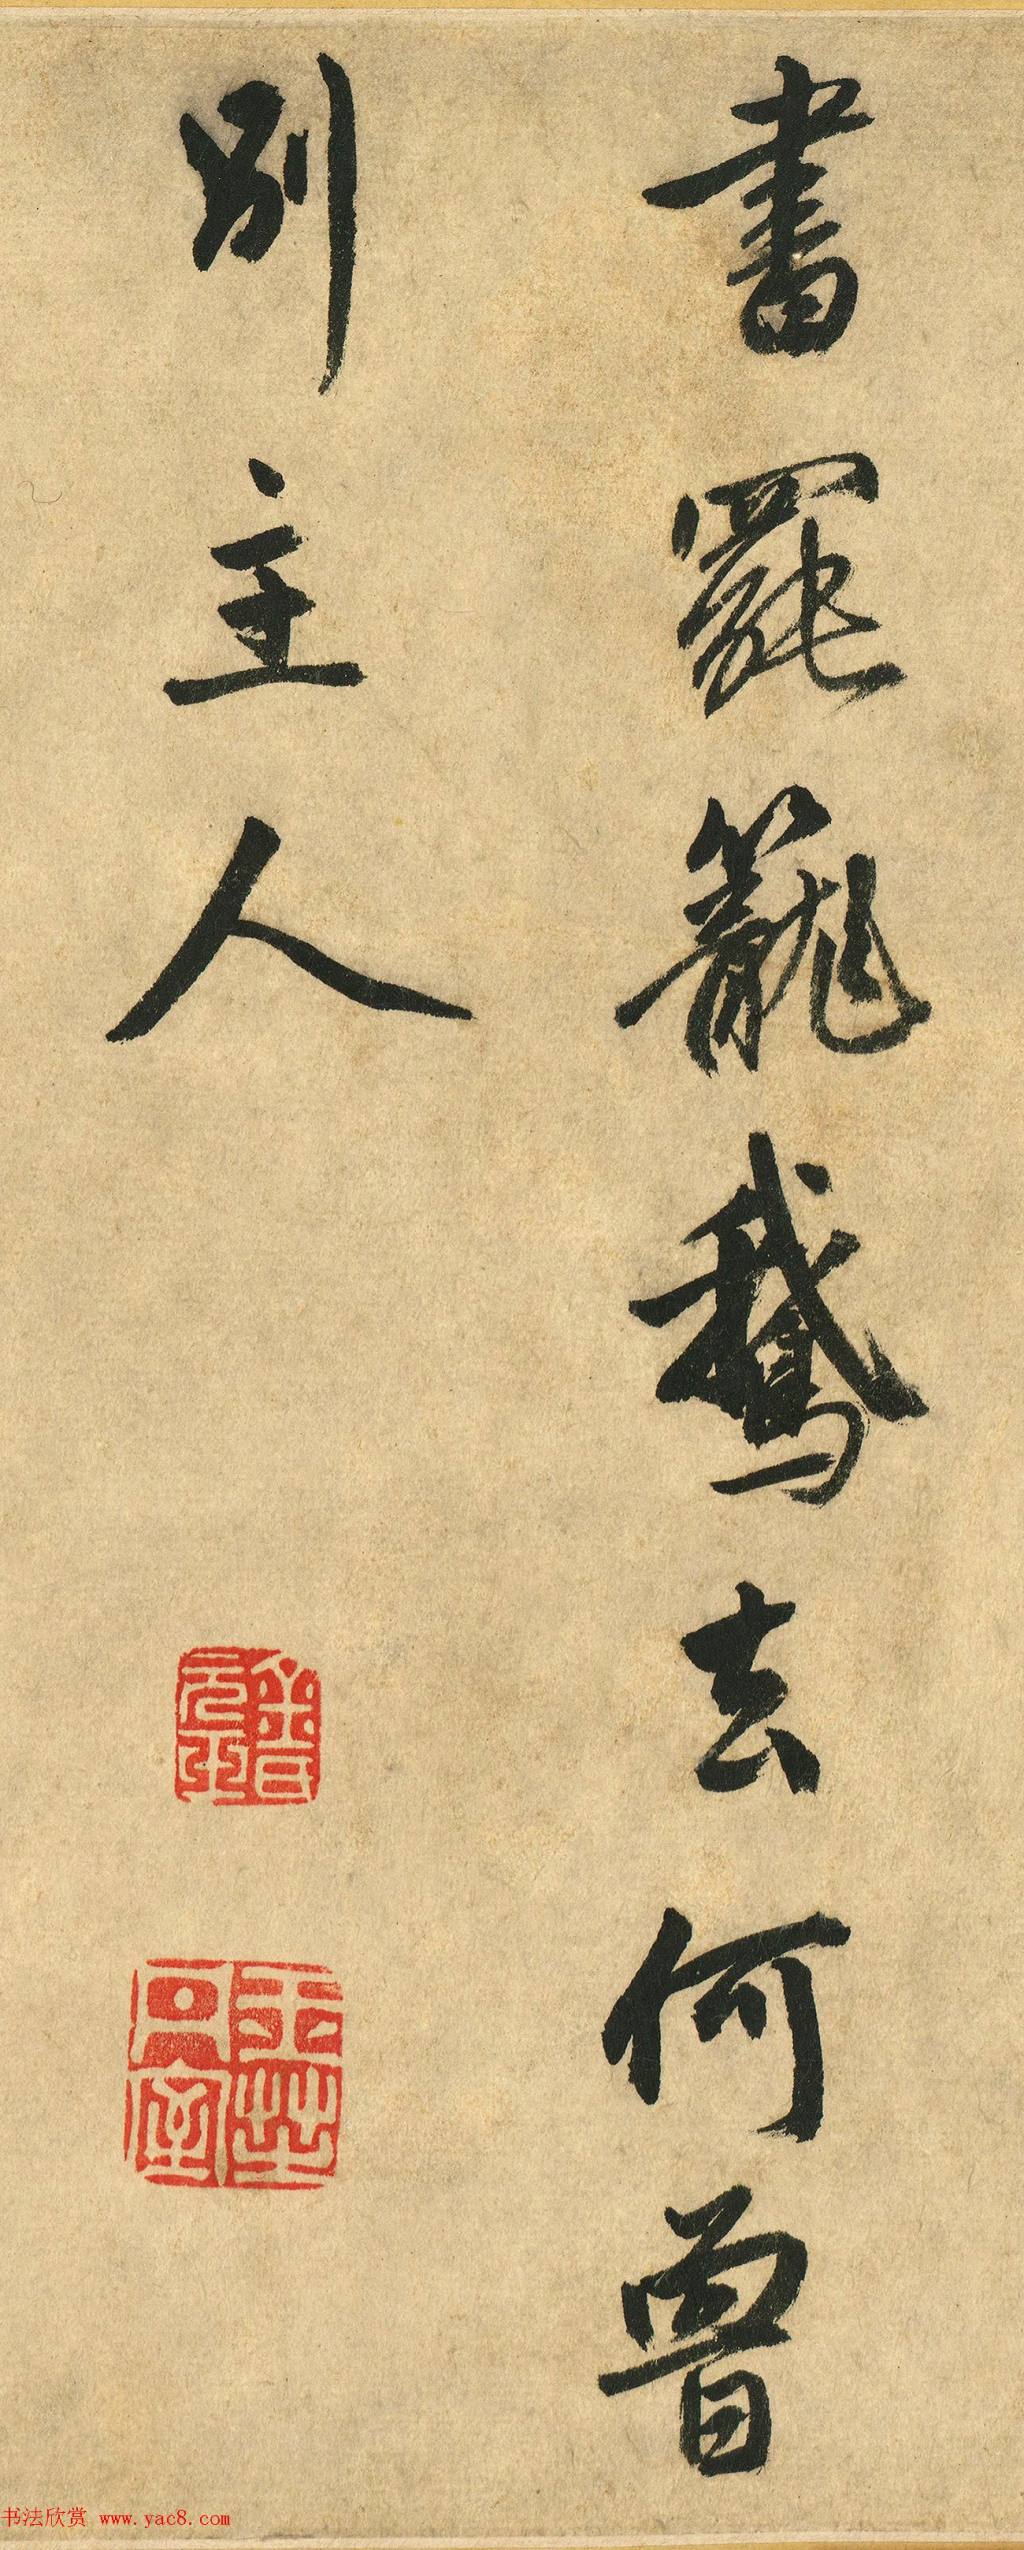 書罷籠鵞去何曾
別主人
书法欣赏 www.yac8.com